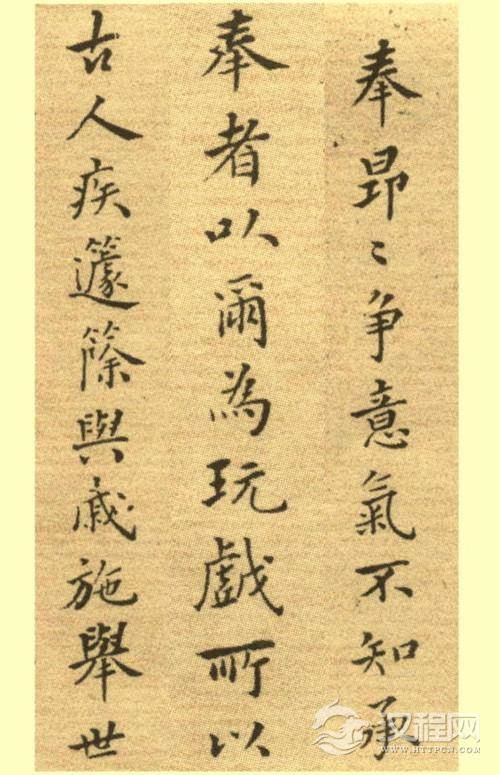 奉昂〻争意氣不知承
奉者以爾為玩戲所以
古人疾籧篨與戚施舉世
汉程网
WWW.HTTPCN.COM